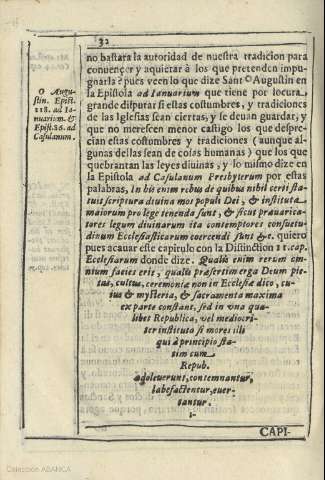 32
no bastara la autoridad de nuestra tradicion para
convencer y aquietar à los que pretenden impu-
gnarla? pues veen lo que dize Sant Augustin en
la Epistola ad Ianuarium que tiene por locura
grande disputar si estas costumbres, y tradiciones
de las Iglesias sean ciertas, y se deuan guardar, y
que no merescen menor castigo los que despre-
cian estas costumbres y tradiciones (aunque al-
gunas dellas sean de cosas humanas) que los que
quebrantan las leyes diuinas, y lo mismo dize en
la Epistola ad Casulanum Presbyterum por estas
palabras, In his enim rebus de quibus nihil certi sta-
tuit scriptura diuina mos populi Dei, & instituta
maiorum pro lege tenenda sunt, & sicut prauarica-
tores legum diuinarum ita contemptores consuetu-
dinum Ecclesiasticarum coercendi sunt &c. quiero
pues acauar este capitulo con la Distinction 11. cap.
Ecclesiarum donde dize. Qualis enim rerum om-
nium facies erit, qualis præsertim erga Deum pie-
tas, cultus, ceremoniæ non in Ecclesia dico, cu-
ius & mysteria, & sacramenta maxima
ex parte constant, sed in vna qua-
libet Republica, vel mediocri-
ter instituta si mores illi
qui à principio sta-
tim cum
Repub.
adoleuerunt, contemnantur,
labefactentur, euer-
tantur.
O Augu-
stin. Epist.
118. ad Ia-
nuarium. &
Epist. 86. ad
Casulanum.
CAPI-
Colección ABANCA